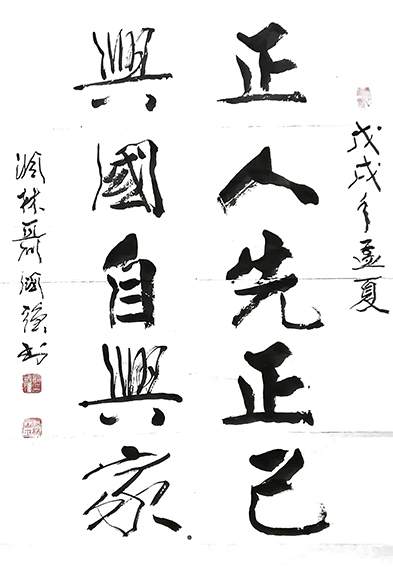 戊戌年孟夏
正人先正己
興國自興家
林聶國强书